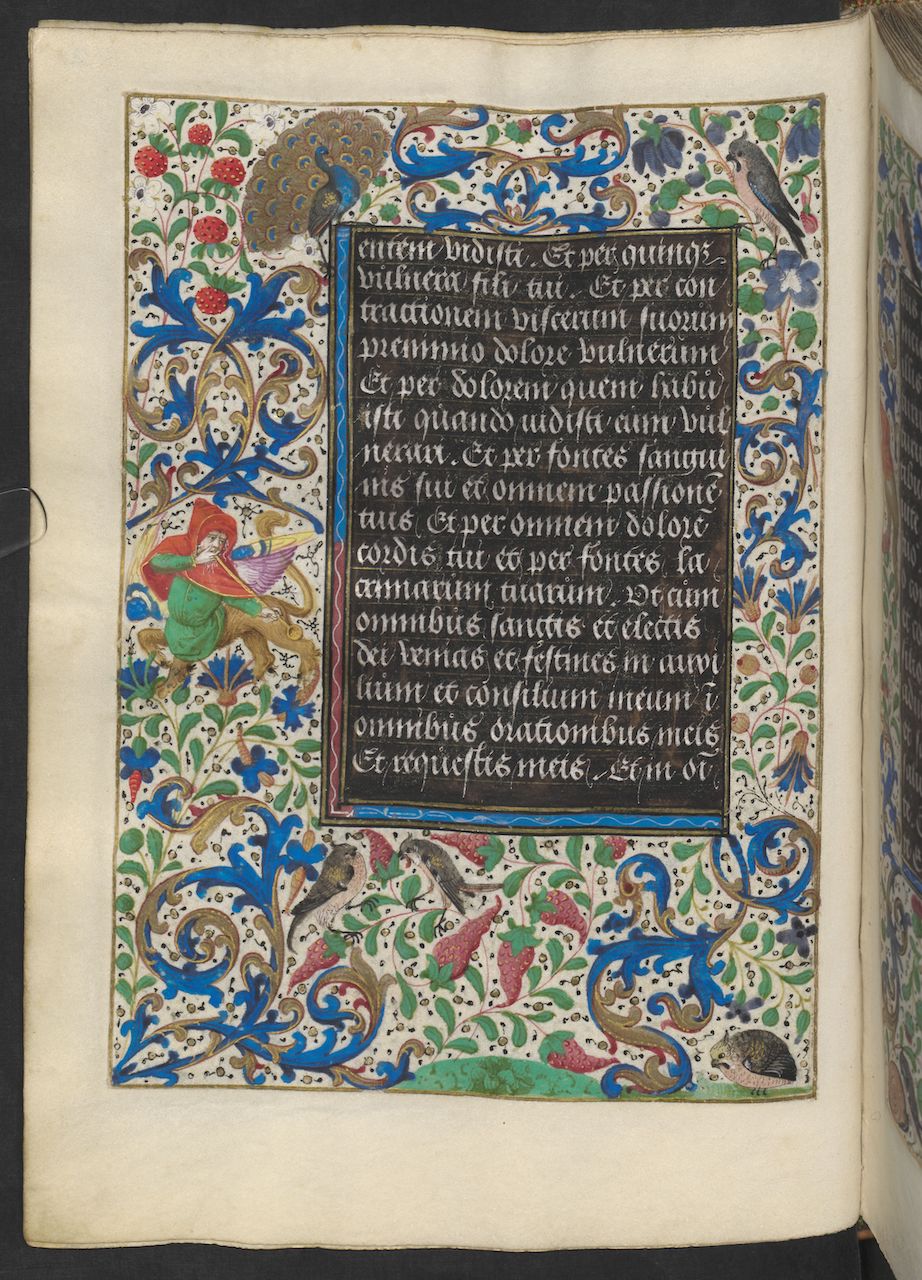 entem vidisti. Et per quinqȝ
vulnera filii tui. Et per con
tractionem viscerum suorum
pre nimio dolore vulnerum
Et per dolorem quem habu
isti quando uidisti eum vul
nerari. Et per fontes sangui
nis sui et omnem passionē
eius Et per omnem dolorē
cordis tui et per fontes la
crimarum tuarum. Vt cum
omnibus sanctis et electis
dei venias et festines in auxi
lium et consilium meum ī
omnibus orationibus meis
Et requestis meis. Et in oī